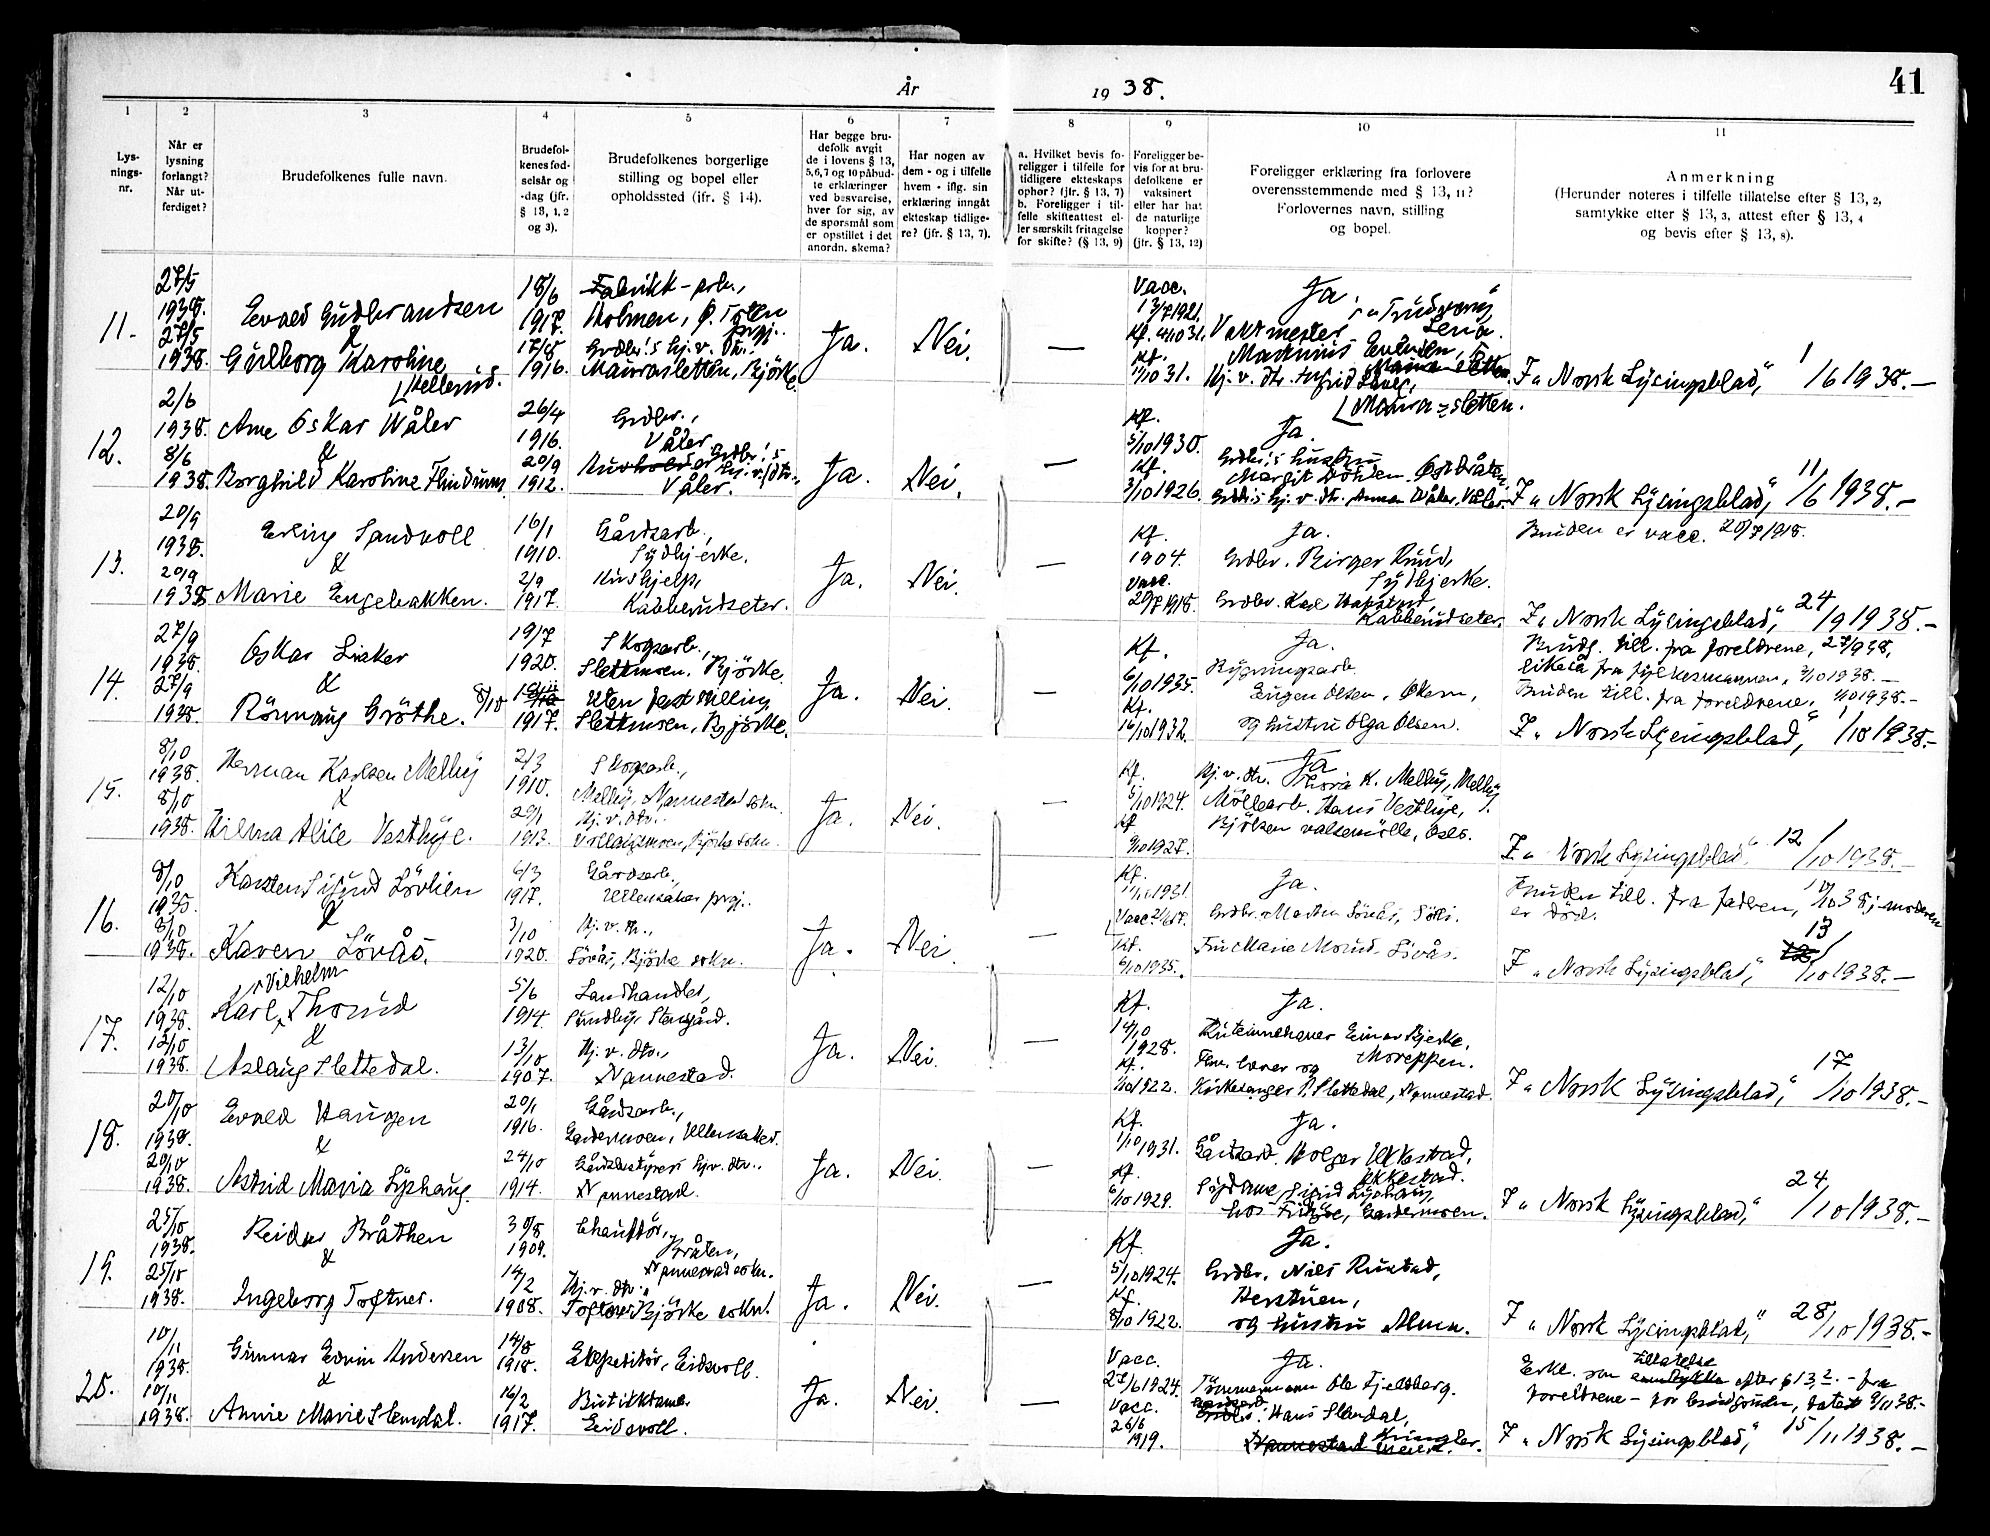 År 1938.
41
1 2 3 4 5 6 7 8 9 10 11
Lysningsnr.
Når er lysning forlangt? Når utferdiget?
Brudefolkenes fulle navn.
Brudefolkenes fødselsår og -dag (jfr. § 13, 1, 2 og 3).
Brudefolkenes borgerlige stilling og bopel eller opholdssted (jfr. § 14).
Har begge brudefolk avgitt de i lovens § 13, 5, 6, 7 og 10 påbudte erklæringer ved besvarelse, hver for sig, av de spørsmål som er opstillet i det anordn. skema?
Har nogen av dem - og i tilfelle hvem - iflg. sin erklæring inngått ekteskap tidligere? (jfr. § 13, 7).
a. Hvilket bevis foreligger i tilfelle for tidligere ekteskaps ophør? (jfr. § 13, 7) b. Foreligger i tilfelle skifteattest eller særskilt fritagelse for skifte? (§ 13, 9)
Foreligger bevis for at brudefolkene er vaksinert eller har hatt de naturlige kopper? (jfr. § 13, 12)
Foreligger erklæring fra forlovere overensstemmende med § 13, 11? Forlovernes navn, stilling og bopel.
Anmerkning (Herunder noteres i tilfelle tillatelse efter § 13, 2, samtykke efter § 13, 3, attest efter § 13, 4 og bevis efter § 13, 8).
11. 27/5 1938. 27/5 1938.
Evald Gudbrandsen & Gulborg Karoline Hellerud.
18/6 1917. 17/8 1916.
Fabrikk-arb., Holmen, Ø. Toten prgj.
Grdbr.'s hj.v. dtr. Maurasletten, Bjørke
Ja. Nei. —
Vacc. 13/7 1921. Kf. 4/10 31. Kf. 11/10 31.
Ja
Vaktmester
Lena.
Maurasletten.
I „Norsk Lysingsblad," 1/6 1938.—
12. 2/6 1938. 8/6 1938.
Arne Oskar Wåler & Borghild Karoline Flindrum.
26/4 1916. 20/9 1912.
Grdbr., Våler
Grdbr.'s hj.v. dtr. Våler.
Ja. Nei. —
Kf. 5/10 1930. Kf. 3/10 1926.
Ja. Grdbr.'s hustru Margit
Grdbr.'s hj.v. dtr. Anna Wåler, Våler.
I „Norsk Lysingsblad," 11/6 1938.—
13. 20/9 1938. 20/9 1938
Erling Sandvoll & Marie Engebakken.
16/1 1910. 2/9 1917.
Gårdsarb., Sydbjerke.
Hushjelp, Kabberudseter.
Ja. Nei. —
Kf. 1904. Vacc. 20/7 1918.
Ja. Grdbr. Birger Ruud, Sydbjerke.
Grdbr. Karl Kabberudseter.
Bruden er vacc. 20/7 1918.
I „Norsk Lysingsblad," 24/9 1938.—
14. 27/9 1938. 27/9 1938.
Oskar Liaker & Rønnaug Grøthe.
19/7 1920. 8/10 1917.
Skogsarb., Slettmoen, Bjørke.
Uten fast stilling Slettmoen, Bjørke.
Ja. Nei. —
Kf. 6/10 1935. Kf. 16/10 1932.
Ja. Rygningsarb. Eugen Olsen, Økern, og hustru Olga Olsen.
Brudg. till. fra foreldrene, 27/9 38, likeså fra fylkesmannen, 3/10 1938.—
Bruden till. fra foreldrene, 1/10 1938.—
I „Norsk Lysingsblad," 1/10 1938.—
15. 8/10 1938. 8/10 1938.
Herman Karlsen Melby & Hilma Alice Vestbye.
2/3 1910. 29/1 1913.
Skogsarb., Melby, Nannestad sokn.
Hj.v. dtr. Bjørke sokn.
Ja. Nei. —
Kf. 5/10 1924. Kf 9/10 1927.
Ja Hj.v. dtr. Thora K. Melby, Melby
Møllearb. Hans Vestbye, Bjølsen valsemølle, Oslo.
I „Norsk Lysingsblad," 12/10 1938.—
16. 8/10 1938. 8/10 1938.
Karsten Sigurd Løvlien & Karen Lövås.
6/3 1917. 3/10 1920.
Gårdsarb., Ullensaker prgj.
Hj.v. dtr., Lövås, Bjørke sokn.
Ja. Nei —
Kf. 1931. Vacc Kf. 6/10 1935.
Ja. Grdbr. Morten Lövås,
Fru Marie Lövås.
Bruden till. fra faderen, 10/10 38; moderen er död.
I „Norsk Lysingsblad," 13/10 1938.—
17. 12/10 1938. 12/10 1938.
Karl Vilhelm Thorud & Aslaug Slettedal.
5/6 1914. 13/10 1907.
Landhandler, Sundby, Stensgård.
Hj.v. dtr., Nannestad.
Ja. Nei. —
Kf. 14/10 1928. Kf. 1/10 1922.
Ja. Ruteinnehaver Einar Bjerke, Moreppen.
Fhv. lærer og kirkesanger P. Slettedal, Nannestad.
I „Norsk Lysingsblad," 17/10 1938.—
18. 20/10 1938. 20/10 1938.
Evald Haugen & Astrid Maria Lyshaug.
20/1 1916. 24/10 1914.
Gårdsarb., Gardermoen, Ullensaker.
Gårdsbestyrers hj.v. dtr., Nannestad.
Ja. Nei. —
Kf. 1/10 1931. Kf. 6/10 1929.
Ja. Gårdsarb. Holger Ukkestad, Ukkestad.
Sydame Sigrid Lyshaug, Gardermoen.
I „Norsk Lysingsblad," 24/10 1938.—
19. 25/10 1938. 25/10 1938.
Reidar Bråthen & Ingeborg Toftner.
30/8 1909. 14/2 1908.
Chauffør, Bråten, Nannestad sokn.
Hj.v. dtr., Toftner, Bjørke sokn.
Ja. Nei. —
Kf. 5/10 1924. Kf. 8/10 1922.
Ja. Grdbr. Nils Rustad, Herstuen, og hustru Alma.
I „Norsk Lysingsblad," 28/10 1938.—
20. 10/11 1938. 10/11 1938.
Gunnar Edvin Andersen & Annie Marie Stendal.
14/8 1918. 16/2 1917.
Ekspeditør, Eidsvoll.
Butikkdame Eidsvoll.
Ja. Nei. —
Vacc. 27/6 1924. Vacc. 26/6 1919.
Ja. Tømmermann Ole Fjeldberg.
Hans Stendal, Kringler.
Erkl. som tillatelse efter § 13,2.— fra foreldrene — for brudgommen, datert 9/11 38.—
I „Norsk Lysingsblad," 15/11 1938.—